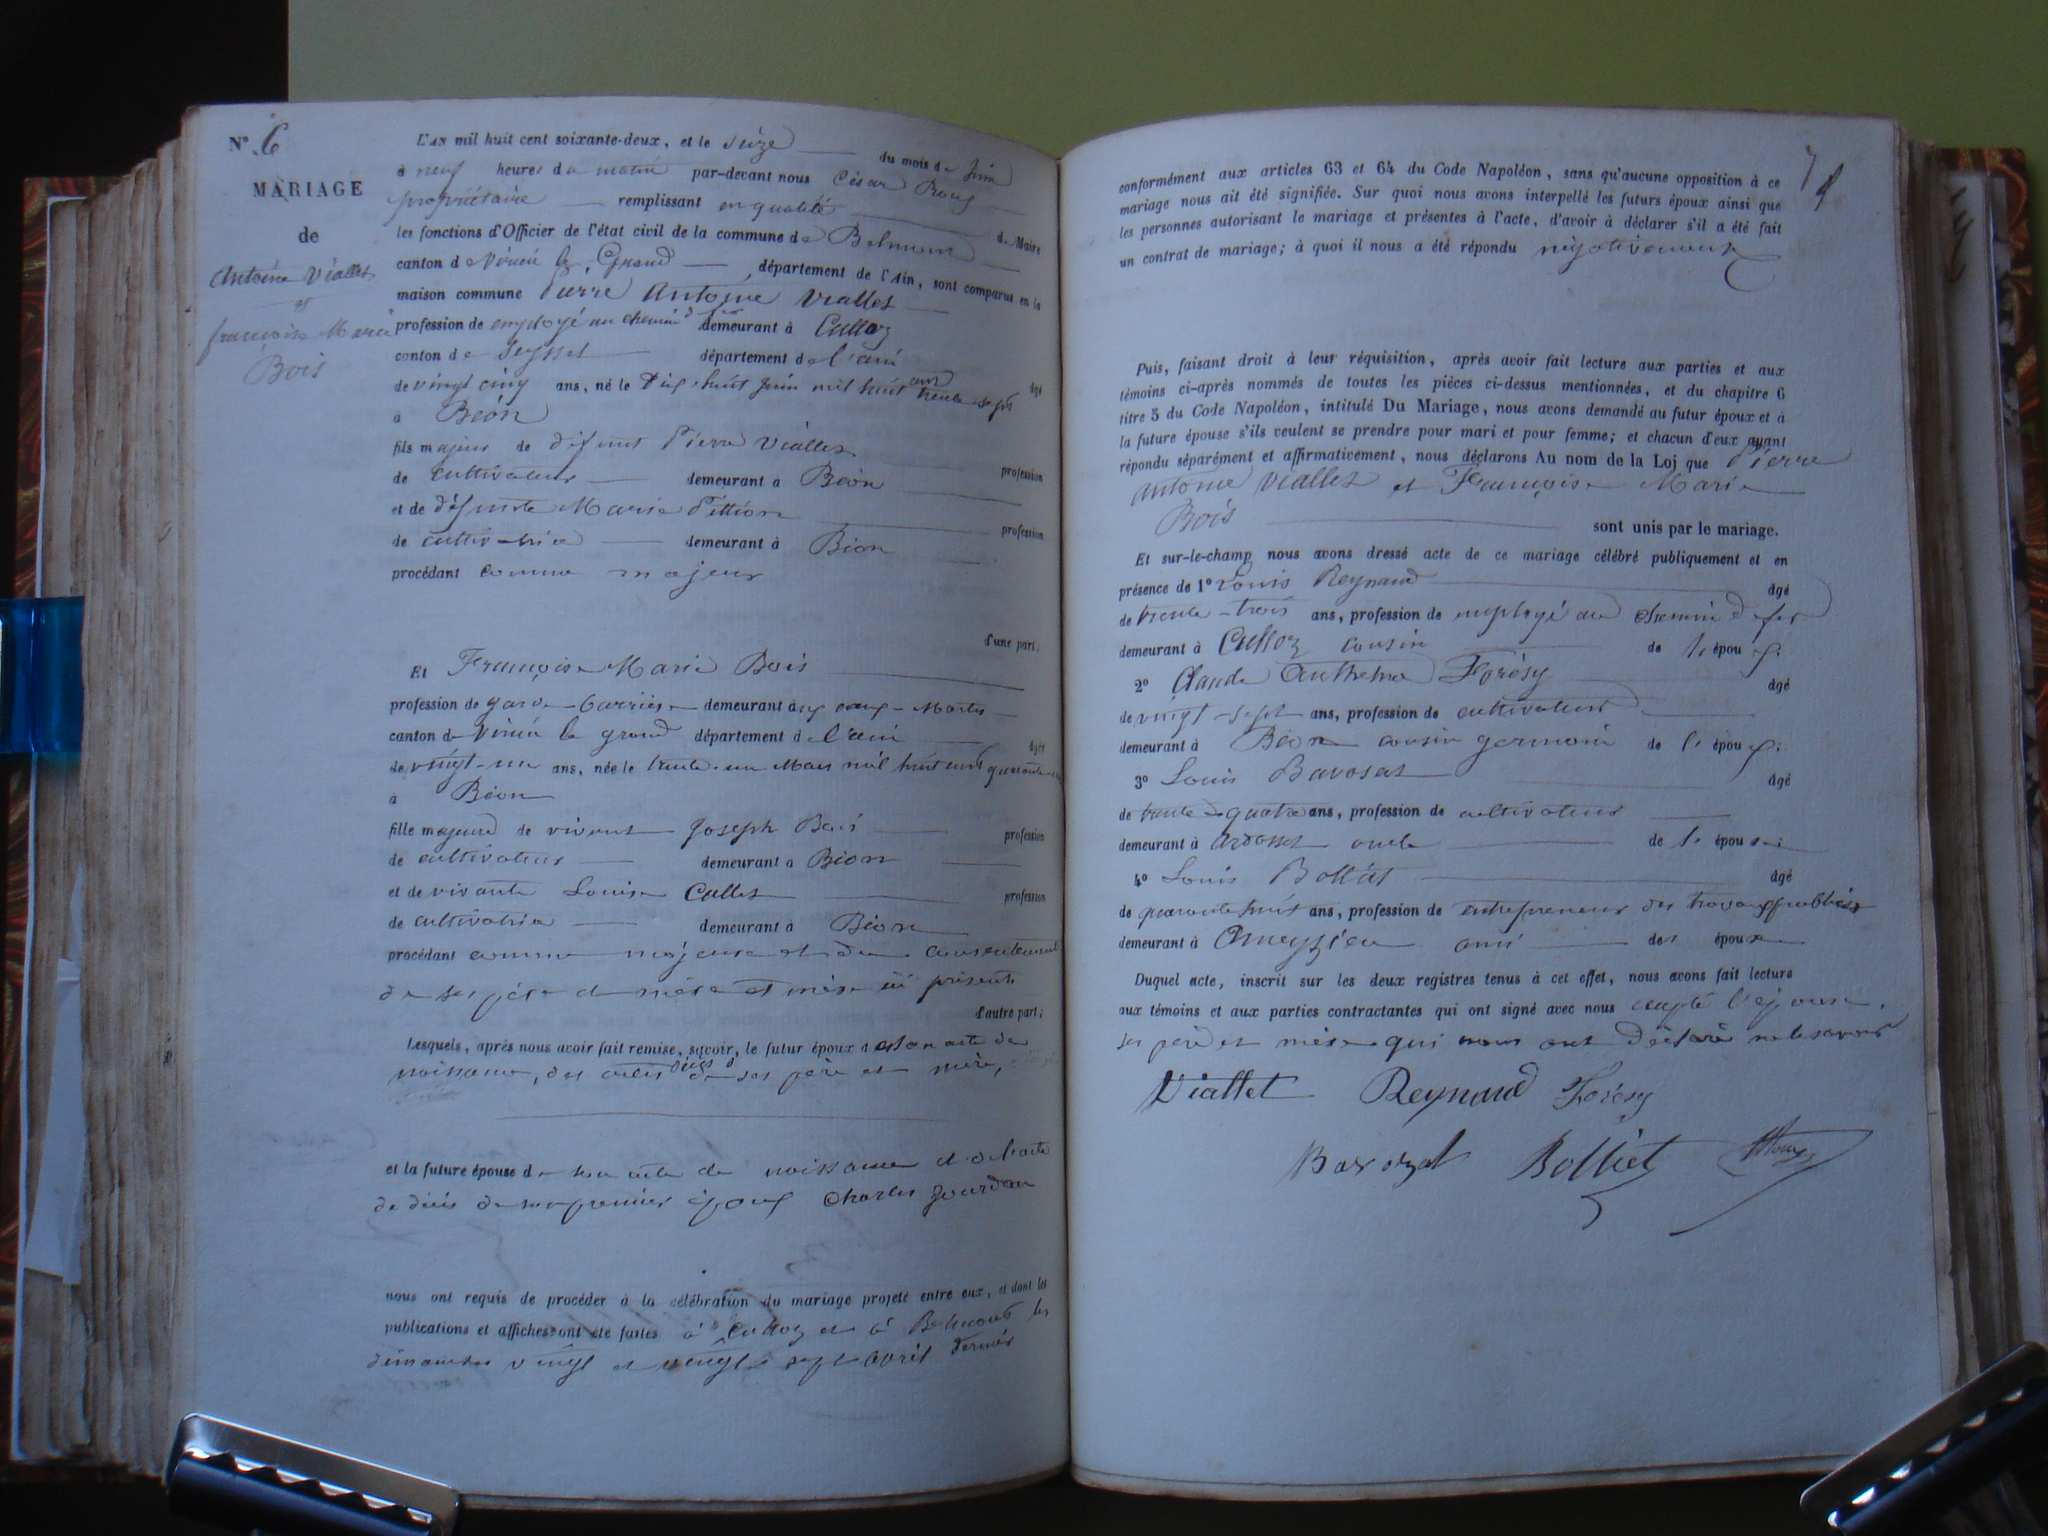 N° 6
MARIAGE
de
Antoine Viallet
et
françoise Marie
Bois
L'AN mil huit cent soixante-deux, et le seize du mois de Juin
à neuf heures du matin par-devant nous César Rouy
propriétaire remplissant en qualité de Maire
les fonctions d'Officier de l'état civil de la commune de Belmont
canton de Virieu le Grand département de l'Ain, sont comparus en la
maison commune Pierre Antoine Viallet
profession de employé au chemin d fer demeurant à Culloz
canton de Seyssel département de l'ain
âgé
de vingt cinq ans, né le Dix-huit Juin mil huit cent trente sept
à Béon
fils majeur de défunt Pierre Viallet
profession
de cultivateur demeurant à Béon
et de défunte Marie Pittion
profession
de cultivatrice demeurant à Béon
procédant comme majeur
d'une part;
Et Françoise Marie Bois
profession de garde-barrière demeurant à
canton de Virieu le grand département de l'ain
âgée
de vingt-un ans, née le trente-un Mars mil huit cent quarante-un
à Béon
fille majeure de vivant Joseph Bois profession
de cultivateur demeurant à Béon
et de vivante Louise Cullet profession
de cultivatrice demeurant à Béon
procédant comme majeure et du consentement
de ses père et mère et mère ici présents
d'autre part;
Lesquels, après nous avoir fait remise, savoir, le futur époux de son acte de
naissance, des actes décès de ses père et mère,
et la future épouse de son acte de naissance et de l'acte
de décès de son premier époux Charles Jourdan
nous ont requis de procéder à la célébration du mariage projeté entre eux, et dont les
publications et affiches ont été faites à Culloz et à Belmont les
dimanches vingt et vingt-sept avril dernier
conformément aux articles 63 et 64 du Code Napoléon, sans qu'aucune opposition à ce
mariage nous ait été signifiée. Sur quoi nous avons interpellé les futurs époux ainsi que
les personnes autorisant le mariage et présentes à l'acte, d'avoir à déclarer s'il a été fait
un contrat de mariage; à quoi il nous a été répondu négativement
Puis, faisant droit à leur réquisition, après avoir fait lecture aux parties et aux
témoins ci-après nommés de toutes les pièces ci-dessus mentionnées, et du chapitre 6
titre 5 du Code Napoléon, intitulé Du Mariage, nous avons demandé au futur époux et à
la future épouse s'ils veulent se prendre pour mari et pour femme; et chacun d'eux ayant
répondu séparément et affirmativement, nous déclarons Au nom de la Loi que Pierre
Antoine Viallet et Françoise Marie
Bois sont unis par le mariage.
Et sur-le-champ nous avons dressé acte de ce mariage célébré publiquement et en
présence de 1° Louis Reynaud âgé
de trente-trois ans, profession de employé au chemin d fer
demeurant à Culloz cousin de l'époux
2° Claude Anthelme Forésy âgé
de vingt-sept ans, profession de cultivateur
demeurant à Béon cousin germain de l'époux
3° Louis Bavosat âgé
de trente-quatre ans, profession de cultivateur
demeurant à Ardosset oncle de l'épouse
4° Louis Bolliet âgé
de quarante huit ans, profession de entrepreneur des travaux publics
demeurant à Ameyzieu ami des époux
Duquel acte, inscrit sur les deux registres tenus à cet effet, nous avons fait lecture
aux témoins et aux parties contractantes qui ont signé avec nous excepté l'épouse,
ses père et mère qui nous ont déclaré ne le savoir
Viallet Reynaud Forésy
Bavozat Bolliet Rouy